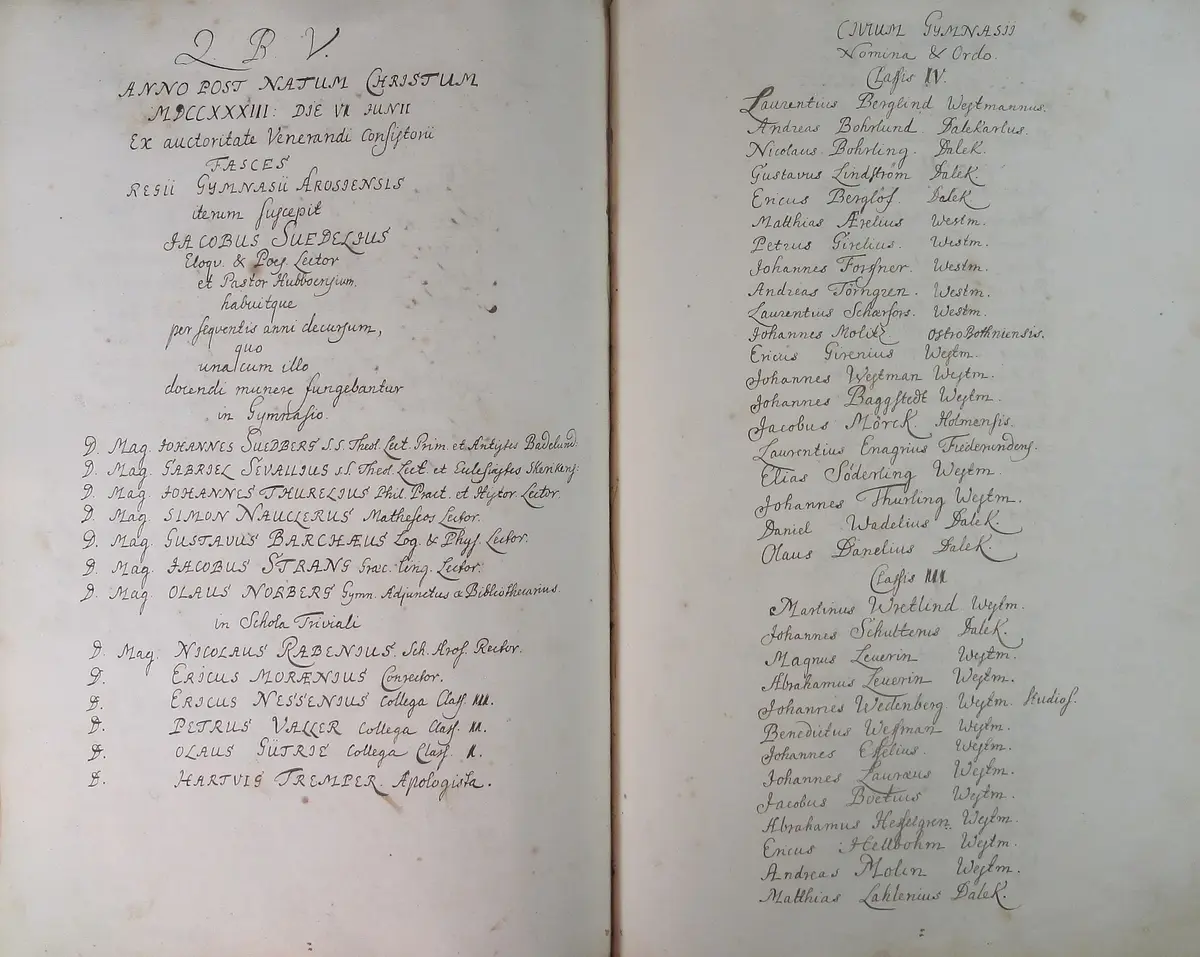 Q. B. V.
ANNO POST NATUM CHRISTUM
MDCCXXXIII: DIE VII IUNII
Ex auctoritate Venerandi Consistorii
FASCES
REGII GYMNASII AROSIENSIS
iterum suscepit
JACOBUS SUEDELIUS
Eloqv. & Poes. Lector
et Pastor Hubboensium.
habuitque
per seqventis anni decursum,
quo
una cum illo
docendi munere fungebantur
in Gymnasio.
D. Mag. JOHANNES SUEDBERG S.S. Theol. Lect. Prim. et Antistes Badelund.
D. Mag. GABRIEL SEVALLIUS S.S. Theol. Lect. et Eclesiastes Skenkens:
D. Mag. JOHANNES THURELIUS Phil. Pract. et Histor. Lector.
D. Mag. SIMON NAUCLERUS Matheseos Lector.
D. Mag. GUSTAVUS BARCHÆUS Log. & Phys. Lector.
D. Mag. JACOBUS STRANG Græc. Ling. Lector.
D. Mag. OLAUS NORBERG Gymn. Adjunctus & Bibliothecarius.
in Schola Triviali
D. Mag. NICOLAUS RABENIUS. Sch. Aros. Rector.
D. ERICUS MORÆNIUS Conrector.
D. ERICUS NESSENIUS Collega Class. III.
D. PETRUS VALLER Collega Class. II.
D. OLAUS GÜTRIE Collega Class. I.
D. HARTVIG TREMPER. Apologista.
CIVIUM GYMNASII
Nomina & Ordo.
Classis IV.
Laurentius Berglind Westmannus.
Andreas Bohrlund Dalekarlus.
Nicolaus Bohrling. Dalek.
Gustavus Lindström Dalek
Ericus Berglöf. Dalek
Matthias Ærelius Westm.
Petrus Girelius. Westm.
Johannes Forssner. Westm.
Andreas Törngren. Westm.
Laurentius Schærfors. Westm.
Johannes Molitz OstroBothniensis.
Ericus Girenius Westm.
Johannes Westman Westm.
Johannes Baggstedt Westm.
Jacobus Mörck. Holmensis.
Laurentius Enagrius Fiederundens.
Elias Söderling Westm.
Johannes Thurling Westm.
Daniel Wadelius Dalek.
Olaus Danelius Dalek.
Classis III.
Martinus Wretlind Westm.
Johannes Schultenus Dalek.
Magnus Leuerin Westm.
Abrahamus Leuerin Westm.
Johannes Wedenberg Westm. Studios.
Benedictus Wessman Westm.
Johannes Esselius. Westm.
Johannes Lauræus Westm.
Jacobus Boetius Westm.
Abrahamus Hesselgren. Westm.
Ericus Hellbohm Westm.
Andreas Molin Westm.
Matthias Lahlenius Dalek.